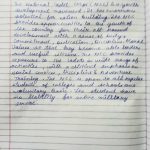 The national cadet corps (NCC) is a youth
development movement. It has enormous
potential for nation building. The NCC
provides opportunities to the youth of
the country for their all round
development with a sense of Duty,
commitment, dedication, discipline & moral
values so that they become able leaders
and useful citizens. The NCC provides
exposure to the cadets in a wide range of
activities, with a distinct emphasis on
social services, discipline & adventure
training. The NCC is open to all regular
students of colleges and schools on a
voluntary basis. The students have
no liability for active military
service.